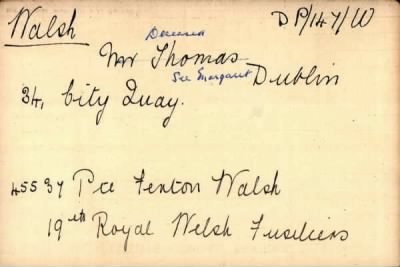 Walsh
DP/147/W
Deceased
Mr Thomas
See Margaret
Dublin
34, City Quay.
45537 Pte Fenton Walsh
19th Royal Welsh Fusiliers